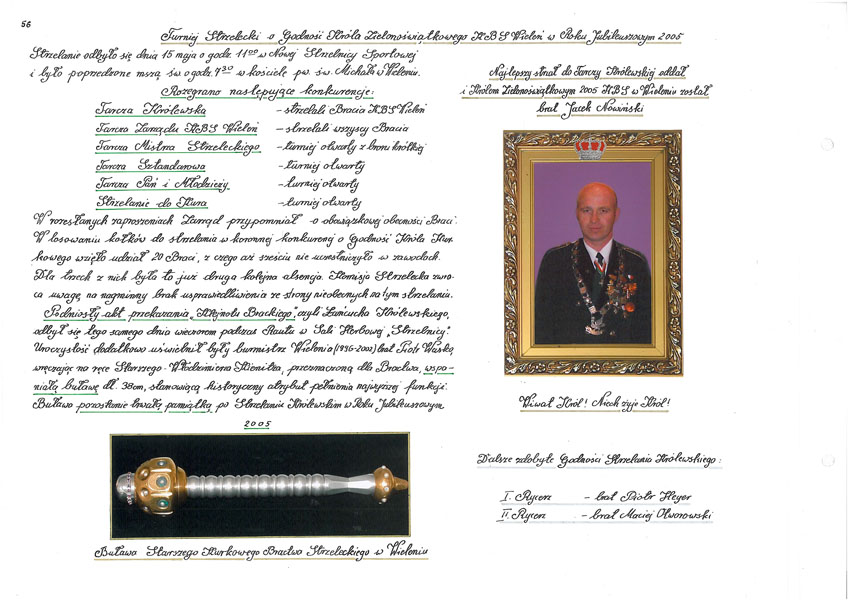 56
Turniej Strzelecki o Godność Króla Zielonoświątkowego KBS Wieleń w Roku Jubileuszowym 2005
Strzelanie odbyło się dnia 15 maja o godz. 11 00 w Nowej Strzelnicy Sportowej
i było poprzedzone mszą św. o godz. 9 30 w kościele pw. św. Michała w Wieleniu.
Rozegrano następujące konkurencje:
Tarcza Królewska - strzelali Bracia KBS Wieleń
Tarcza Zarządu KBS Wieleń - strzelali wszyscy Bracia
Tarcza Mistrza Strzeleckiego - turniej otwarty z broni krótkiej
Tarcza Sztandarowa - turniej otwarty
Tarcza Pań i Młodzieży - turniej otwarty
Strzelanie do Kura - turniej otwarty
W rozesłanych zaproszeniach Zarząd przypomniał o obowiązkowej obecności Braci.
W losowaniu kołków do strzelania w koronnej konkurencji o Godność Króla Kur-
kowego wzięło udział 20 Braci, z czego aż sześciu nie uczestniczyło w zawodach.
Dla trzech z nich była to już druga kolejna absencja. Komisja Strzelecka zwra-
ca uwagę na nagminny brak usprawiedliwienia ze strony nieobecnych na tym strzelaniu.
Podniosły akt przekazania "Klejnotu Brackiego", czyli Łańcucha Królewskiego,
odbył się tego samego dnia wieczorem podczas Rautu w Sali Herbowej "Strzelnicy".
Uroczystość dodatkowo uświetnił były burmistrz Wielenia (1996-2002) brat Piotr Waśko,
wręczając na ręce Starszego - Włodzimierza, przeznaczoną dla Bractwa, wspa-
niałą buławę dł. 38cm, stanowiącą historyczny atrybut pełnienia najwyższej funkcji.
Buława pozostanie trwałą pamiątką po Strzelaniu Królewskim w Roku Jubileuszowym
2005
Buława Starszego Kurkowego Bractwa Strzeleckiego w Wieleniu
Najlepszy strzał do Tarczy Królewskiej oddał
i Królem Zielonoświątkowym 2005 KBS w Wieleniu został
brat Jacek Nowiński
Wiwat Król! Niech żyje Król!
Dalsze zdobyte Godności Strzelania Królewskiego:
I. Rycerz - brat Piotr Heyer
II. Rycerz - brat Maciej Otworowski